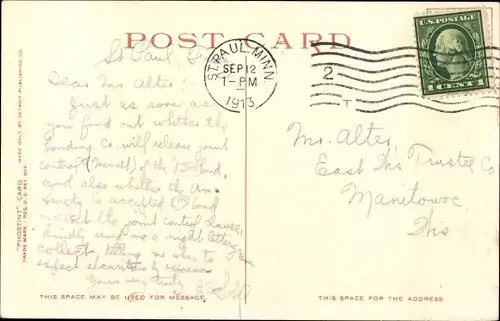 POST CARD
ST. PAUL, MINN.
SEP 12
1-PM
1913
2
T
U.S. POSTAGE
1 CENT 1
St Paul,
Dear Mr Alter:-
Just as soon as
you find out whether the
Bonding Co. will release joint
control of the bond,
and also whether the Am
Surety Co accepted bond
the joint control clause,
kindly send me a night letter
collect, telling me when to
expect securities by express
Yours very truly
Mr. Alter,
East Wis Trustee Co
Manitowoc
Wis
"PHOSTINT" CARD
TRADE MARK. REG. U.S. PAT. OFF.
MADE ONLY BY DETROIT PUBLISHING CO.
THIS SPACE MAY BE USED FOR MESSAGE.
THIS SPACE FOR THE ADDRESS.